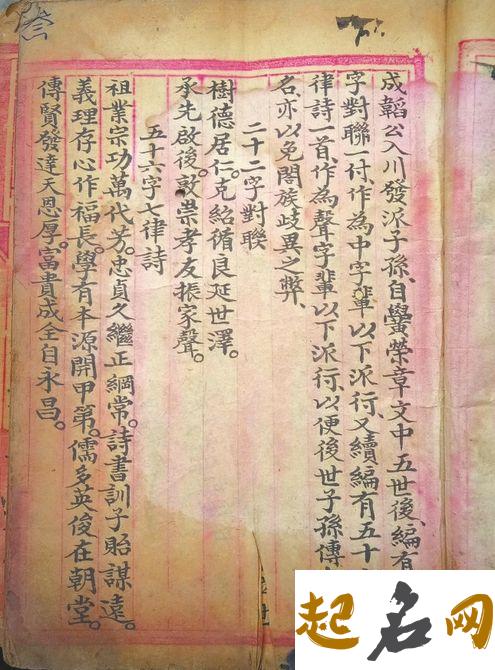 成韜公入川發派子孫、自黌榮章文中五世後、編有
字對聯一付、作為中字輩以下派行、又續編有五十
律詩一首、作為聲字輩以下派行、以便後世子孫傳
名、亦以免閤族歧異之弊、
二十二字對聯
樹德居仁。克紹循良延世澤。
承先啟後。敦崇孝友振家聲。
五十六字七律詩
祖業宗功萬代芳。忠貞久繼正綱常。詩書訓子貽謀遠。
義理存心作福長。學有本源開甲第。儒多英俊在朝堂。
傳賢發達天恩厚。富貴成全自永昌。
起名网